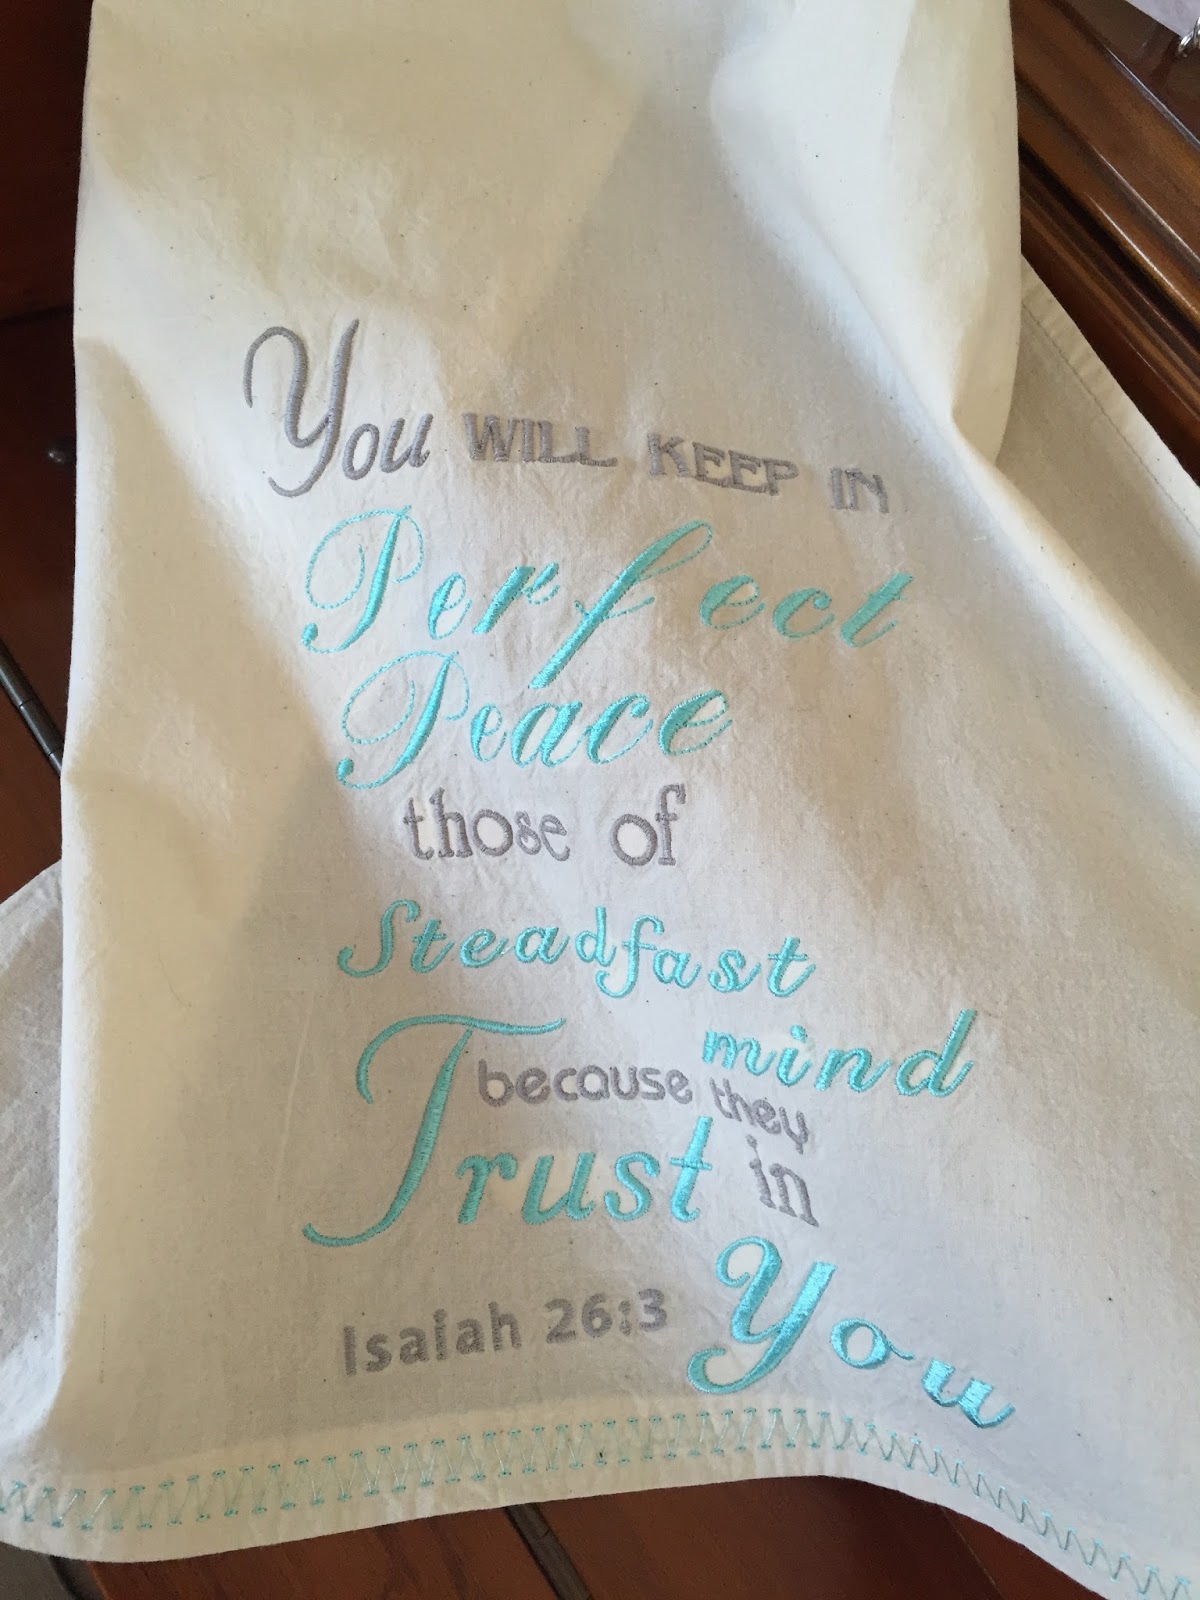 You WILL KEEP IN
Perfect
Peace
those of
Steadfast
mind
because they
Trust in
You
Isaiah 26:3